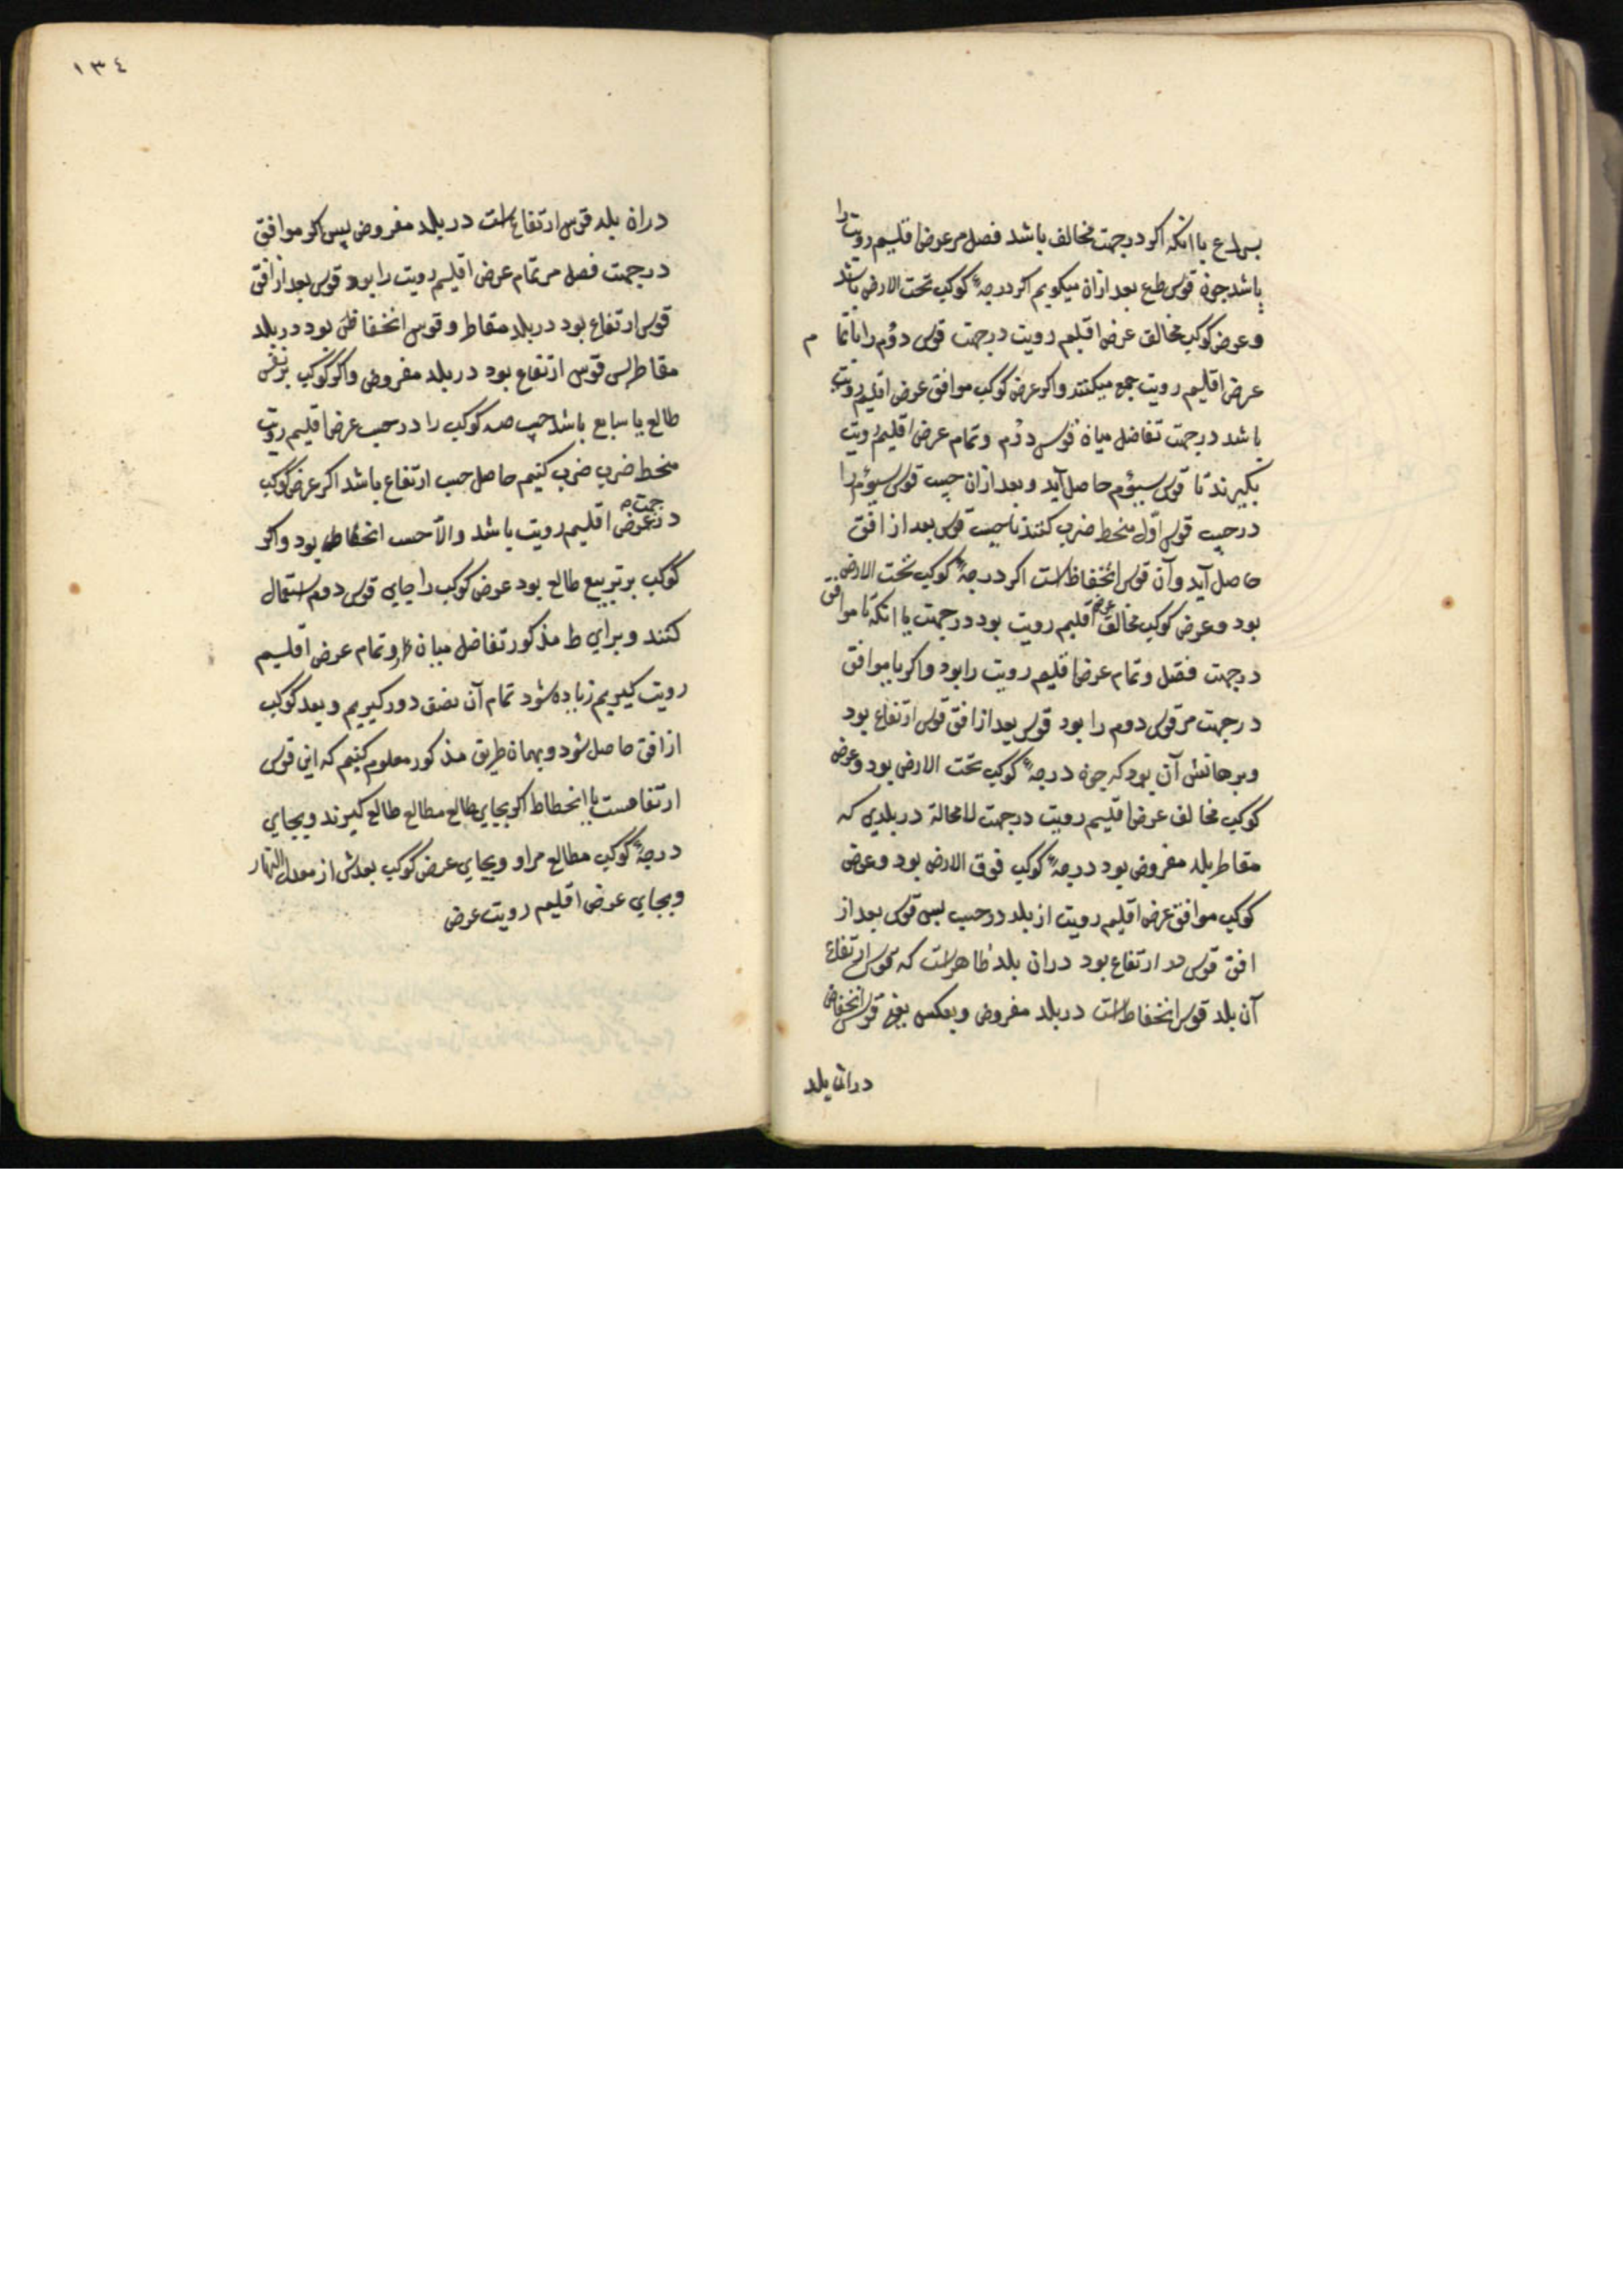 یا انکه اکر درجهت مخالف باشد فصل مر عرض اقلیم رویت را
باشد جون قوس طع بعد ازان میکویم اکر درجهٔ کوکب تحت الارض باشد
و عرض کوکب مخالف عرض اقلیم رویت درجهت قوس دوُم را با تما م
عرض اقلیم رویت جمع میکنند واکر عرض کوکب موافق عرض اقلیم رویت
باشد درجهت تفاضل میان قوس دوُم و تمام عرض اقلیم رویت
بکیرند تا قوس سیوُم حاصل آید و بعد ازان جیب قوس سیوُم را
در جیب قوس اوّل منحط ضرب کنند تا جیب قوس بعد از افق
حاصل آید وآن قوس انخفاظ است اکر درجهٔ کوکب تحت الارض
بود و عرض کوکب مخالف عرض اقلیم رویت بود درجهت یا انکه تا موافق
درجهت فصل و تمام عرض اقلیم رویت را بود واکر یا موافق
درجهت مر قوس دوم را بود قوس بعد از افق قوس ارتفاع بود
وبرهانش آن بود که جون درجهٔ کوکب تحت الارض بود وعرض
کوکب مخالف عرض اقلیم رویت درجهت لامحالة در بلدی که
مقاطر بلد مفروض بود درجهٔ کوکب فوق الارض بود وعرض
کوکب موافق عرض اقلیم رویت از بلد درجیب بس قوس بعد از
افق قوس ارتفاع بود دران بلد ظاهر است که قوس ارتفاع
آن بلد قوس انخفاط است در بلد مفروض وبعکس یعنی قوس انخفاض
دران بلد
١٣٤
دران بلد قوس ارتفاع است در بلد مفروض پس اکر موافق
درجهت فصل مر تمام عرض اقلیم رویت را بود قوس بعد از افق
قوس ارتفاع بود در بلد مقاطر و قوس انخفاظ بود در بلد
مقاطر بس قوس ارتفاع بود در بلد مفروض واکر کوکب بر نفس
طالع یا سابع باشد جیب کوکب را در جیب عرض اقلیم رویت
منحط ضرب ضرب کنیم حاصل جیب ارتفاع باشد اکر عرض کوکب
در جهت عرض اقلیم رویت باشد والّا جیب انخفاط بود واکر
کوکب بر تربیع طالع بود عرض کوکب را جای قوس دوم استعمال
کنند و برای ط مذکور تفاضل میان و تمام عرض اقلیم
رویت کیریم زیاده شود تمام آن نصف دور کیریم و بعد کوکب
از افق حاصل شود و بهمان طریق مذکور معلوم کنیم که این قوس
ارتفاعست یا انحطاط اکر بجای طالع مطالع طالع کیرند وبجای
درجهٔ کوکب مطالع مر او وبجای عرض کوکب بعدش از معدل النهار
وبجای عرض اقلیم رویت عرض